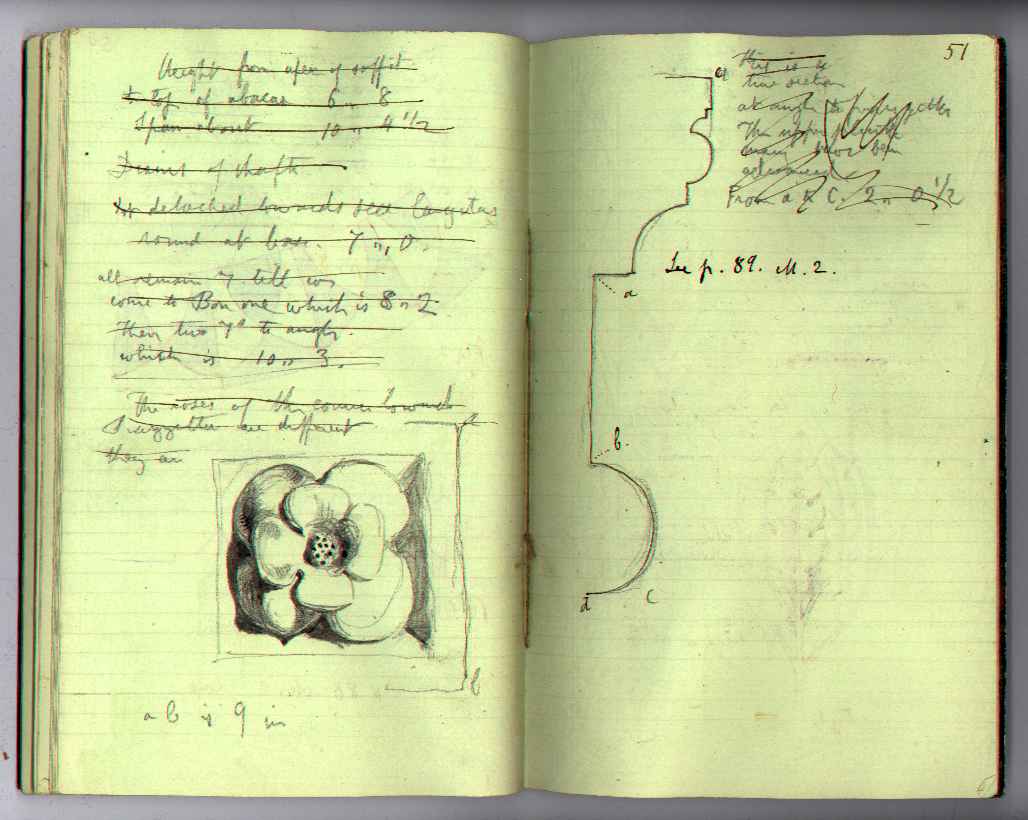 Height from apex of soffit
to top of abacus 6 " 8
Span about 10 " 4 1/2
Diams of shafts
detached towards sea
round at base. 7 ", 0.
all remain 7. till we
come to Bon one which is 8 " 2
Then two 7" to angle.
which is 10 " 3.
The roses of the corner towards
Piazzetta are different
they are
b
b
a b is 9 in
51
a
This is
true section
at angle to
The upper
may have been
advanced
From a to C. 2 " 0 1/2
See p. 89. M. 2.
a
b.
d c